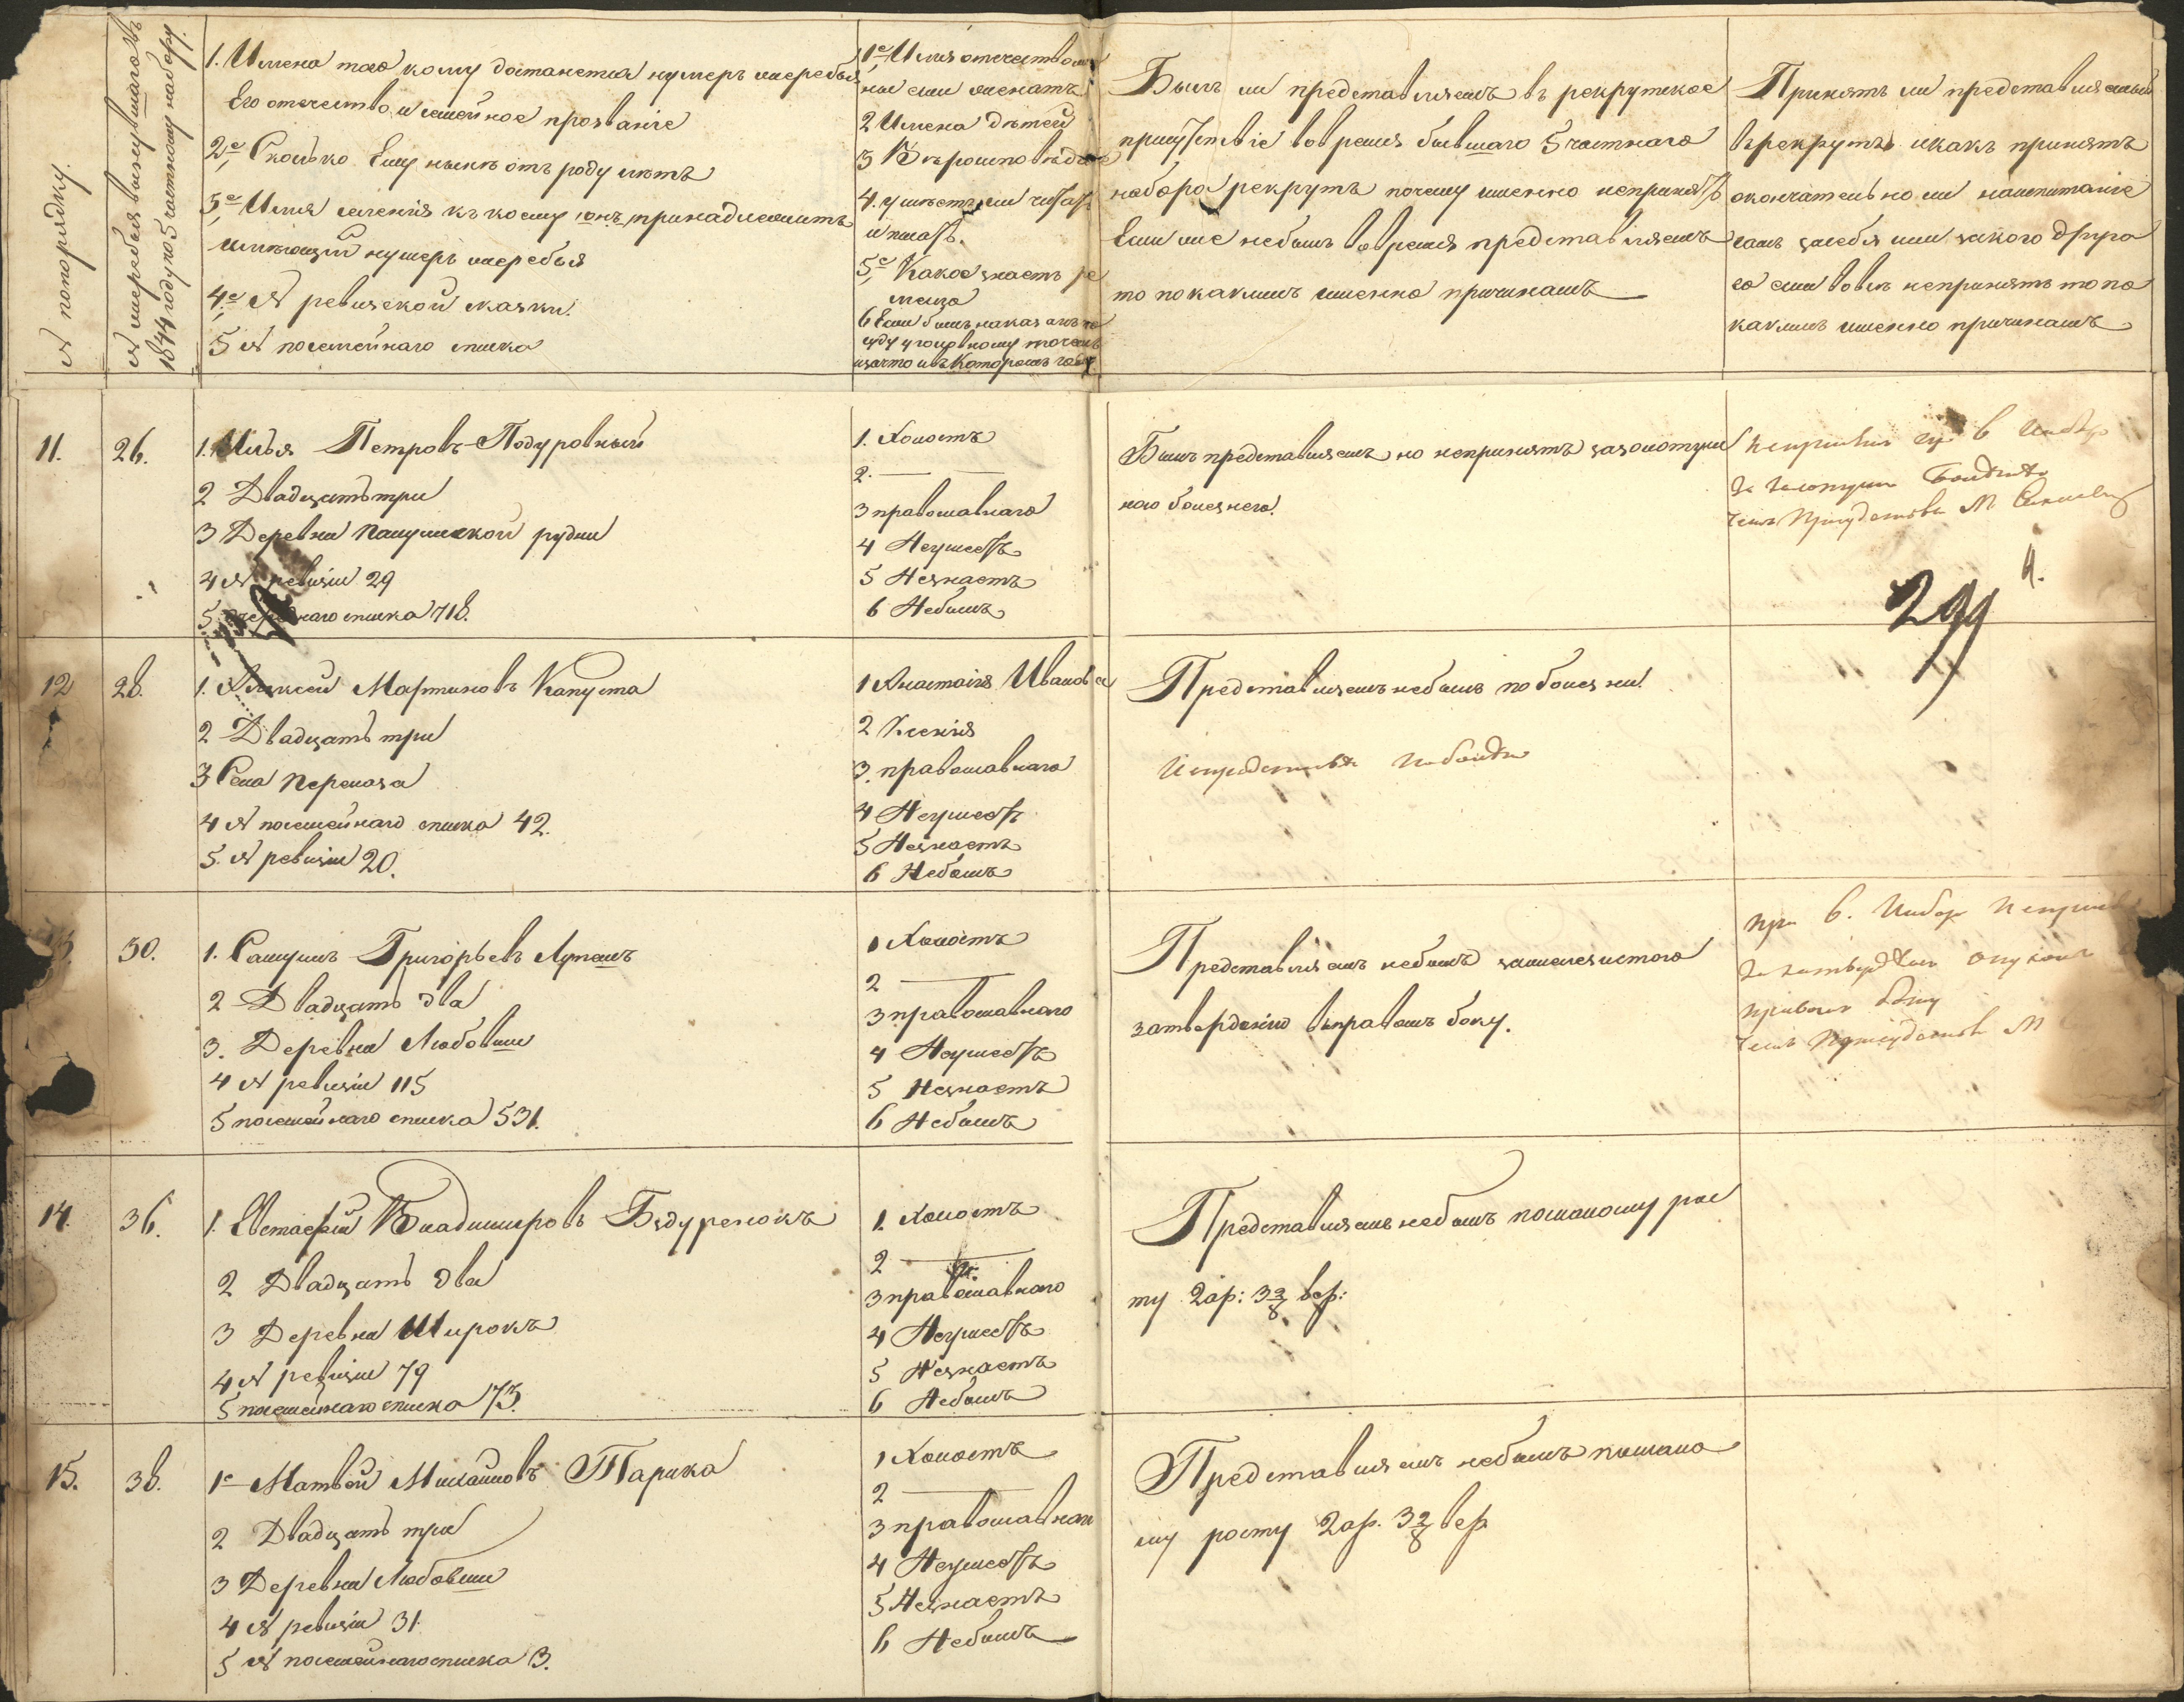 № попорядку.
№ жеребья вынувшаго въ
1844 году по 5 частному набору.
1. Имена того кому достанется нумеръ жеребья
Его отечество и семейное прозваніе
2е, Сколько Ему нынѣ отъ роду лѣтъ
3е, Имя селенія къ коему онъ принадлежитъ
имѣющій нумеръ жеребья
4е, № ревизской сказки.
5 № посемейнаго списка
1е Имя отечество
ные если женатъ
2 Имена дѣтей
3 Вѣроисповѣд
4. умѣетъ ли читать
и писать.
5е, Какое знаетъ ре
месло
6 Если былъ наказанъ по
суду уголовному то
за что и въ Которомъ году
Былъ ли представляемъ въ рекрутское
присутствіе вовремя бывшаго 5 частнаго
набора рекрутъ почему именно непринятъ
Если же небылъ вовремя представляемъ
то по какимъ именно причинамъ
Принятъ ли представляемый
врекруты икакъ принятъ
окончательно ли наиспытаніе
самъ засебя или закого друга
го если вовсе непринятъ то по
какимъ именно причинамъ
11.
26.
1. Илья Петровъ Подуровный
2 Двадцать три
3 Деревни Папушнской рудни
4 № ревизіи 29
5 списка 718.
1. Холостъ
2. —
3 православнаго
4 Неумеетъ
5 Незнаетъ
6 Небылъ
Былъ представляемъ но непринятъ зазолотуш
ною болезнею.
299
12
28.
1. Алексей Мартиновъ Капуста
2 Двадцать три
3 Села Перелаза
4 № посемейнаго списка 42.
5. № ревизіи 20.
1 Анастасія Иванова
2 Ксенія
3. православнаго
4 Неумеетъ
5 Незнаетъ
6 Небылъ
Представляемъ небылъ по болезни.
30.
1. Самуилъ Григорьевъ Лупашъ
2 Двадцать два
3. Деревни Любовши
4 № ревизіи 115
5 посемейнаго списка 531.
1 Холостъ
2 —
3 православнаго
4 Неумеетъ
5 Незнаетъ
6 Небылъ
Представляемъ небылъ зажелезистого
затвердению вправомъ боку.
14.
36.
1. Евстафій Владимировъ Бздуренокъ
2 Двадцать два
3 Деревни Широкъ
4 № ревизіи 79
5 посемейнаго списка 173.
1. Холостъ
2 —
3 православнаго
4 Неумеетъ
5 Незнаетъ
6 Небылъ
Представляемъ небылъ помалому рос
ту 2 ар: 3 2/8 вер:
15.
38.
1е Матвей Михайловъ Тарика
2 Двадцать три
3 Деревни Любовши
4 № ревизіи 31.
5 № посемейнаго списка 3.
1 Холостъ
2 —
3 православнаго
4 Неумеетъ
5 Незнаетъ
6 Небылъ
Представляемъ небылъ помало
му росту 2 ар. 3 2/8 вер